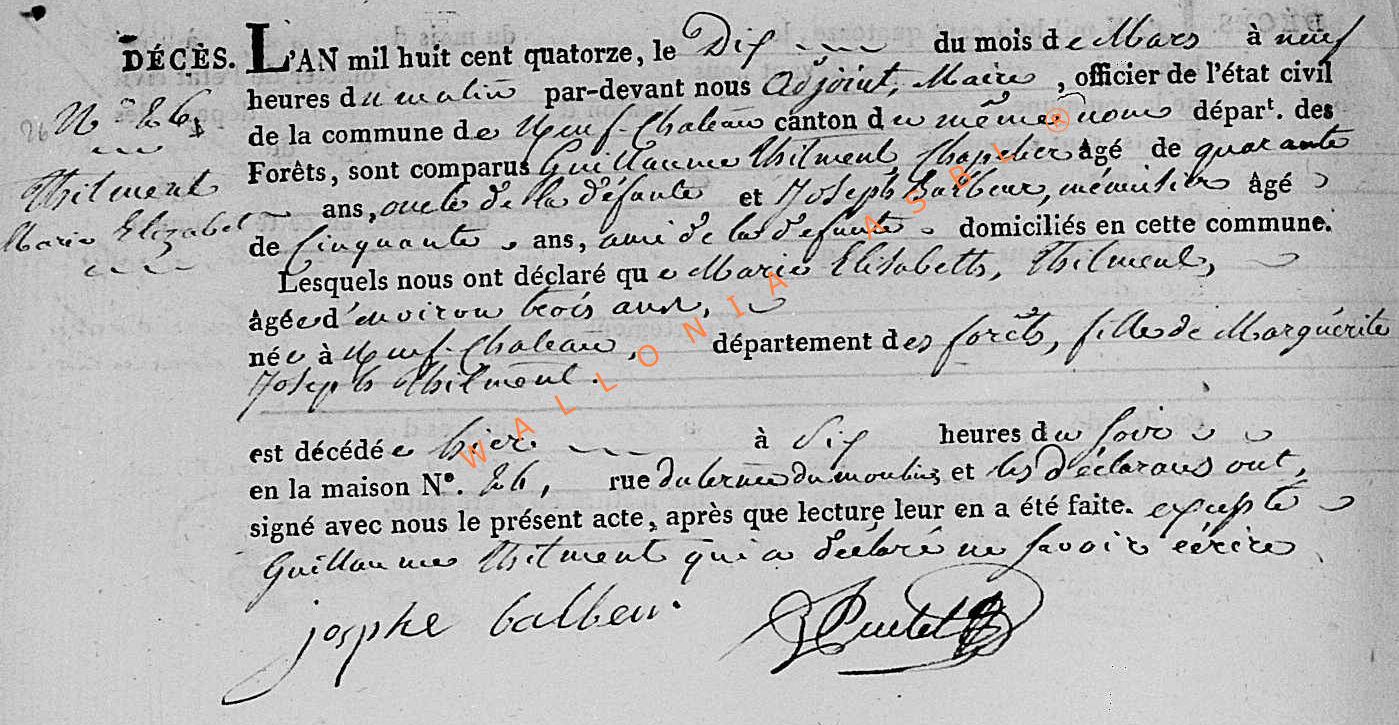 DÉCÈS. L'AN mil huit cent quatorze, le Dix du mois de Mars à neuf
heures du matin par-devant nous adjoint, Maire, officier de l'état civil
N° 26
de la commune de Neuf-Chateau canton du même nom départ. des
Thilment
Forêts, sont comparus Guillaume Thilment, Chapelier âgé de quarante
ans, oncle de la défunte et Joseph Barbeux, ménuisier âgé
Marie Elizabet
de Cinquante ans, ami de la defunte domiciliés en cette commune.
Lesquels nous ont déclaré que Marie Elisabeth, Thilment,
âgée d'environ trois ans,
née à Neuf-Chateau, département des forêts, fille de Marguérite
Joseph Thilment.
est décédée hier à Six heures du soir
en la maison N°. 26, rue du moulin, et les déclarans ont,
signé avec nous le présent acte, après que lecture leur en a été faite. excepté
Guillaume Thilment qui a déclaré ne savoir écrire
josphe balbeu.
WALLONIA ASBL ®